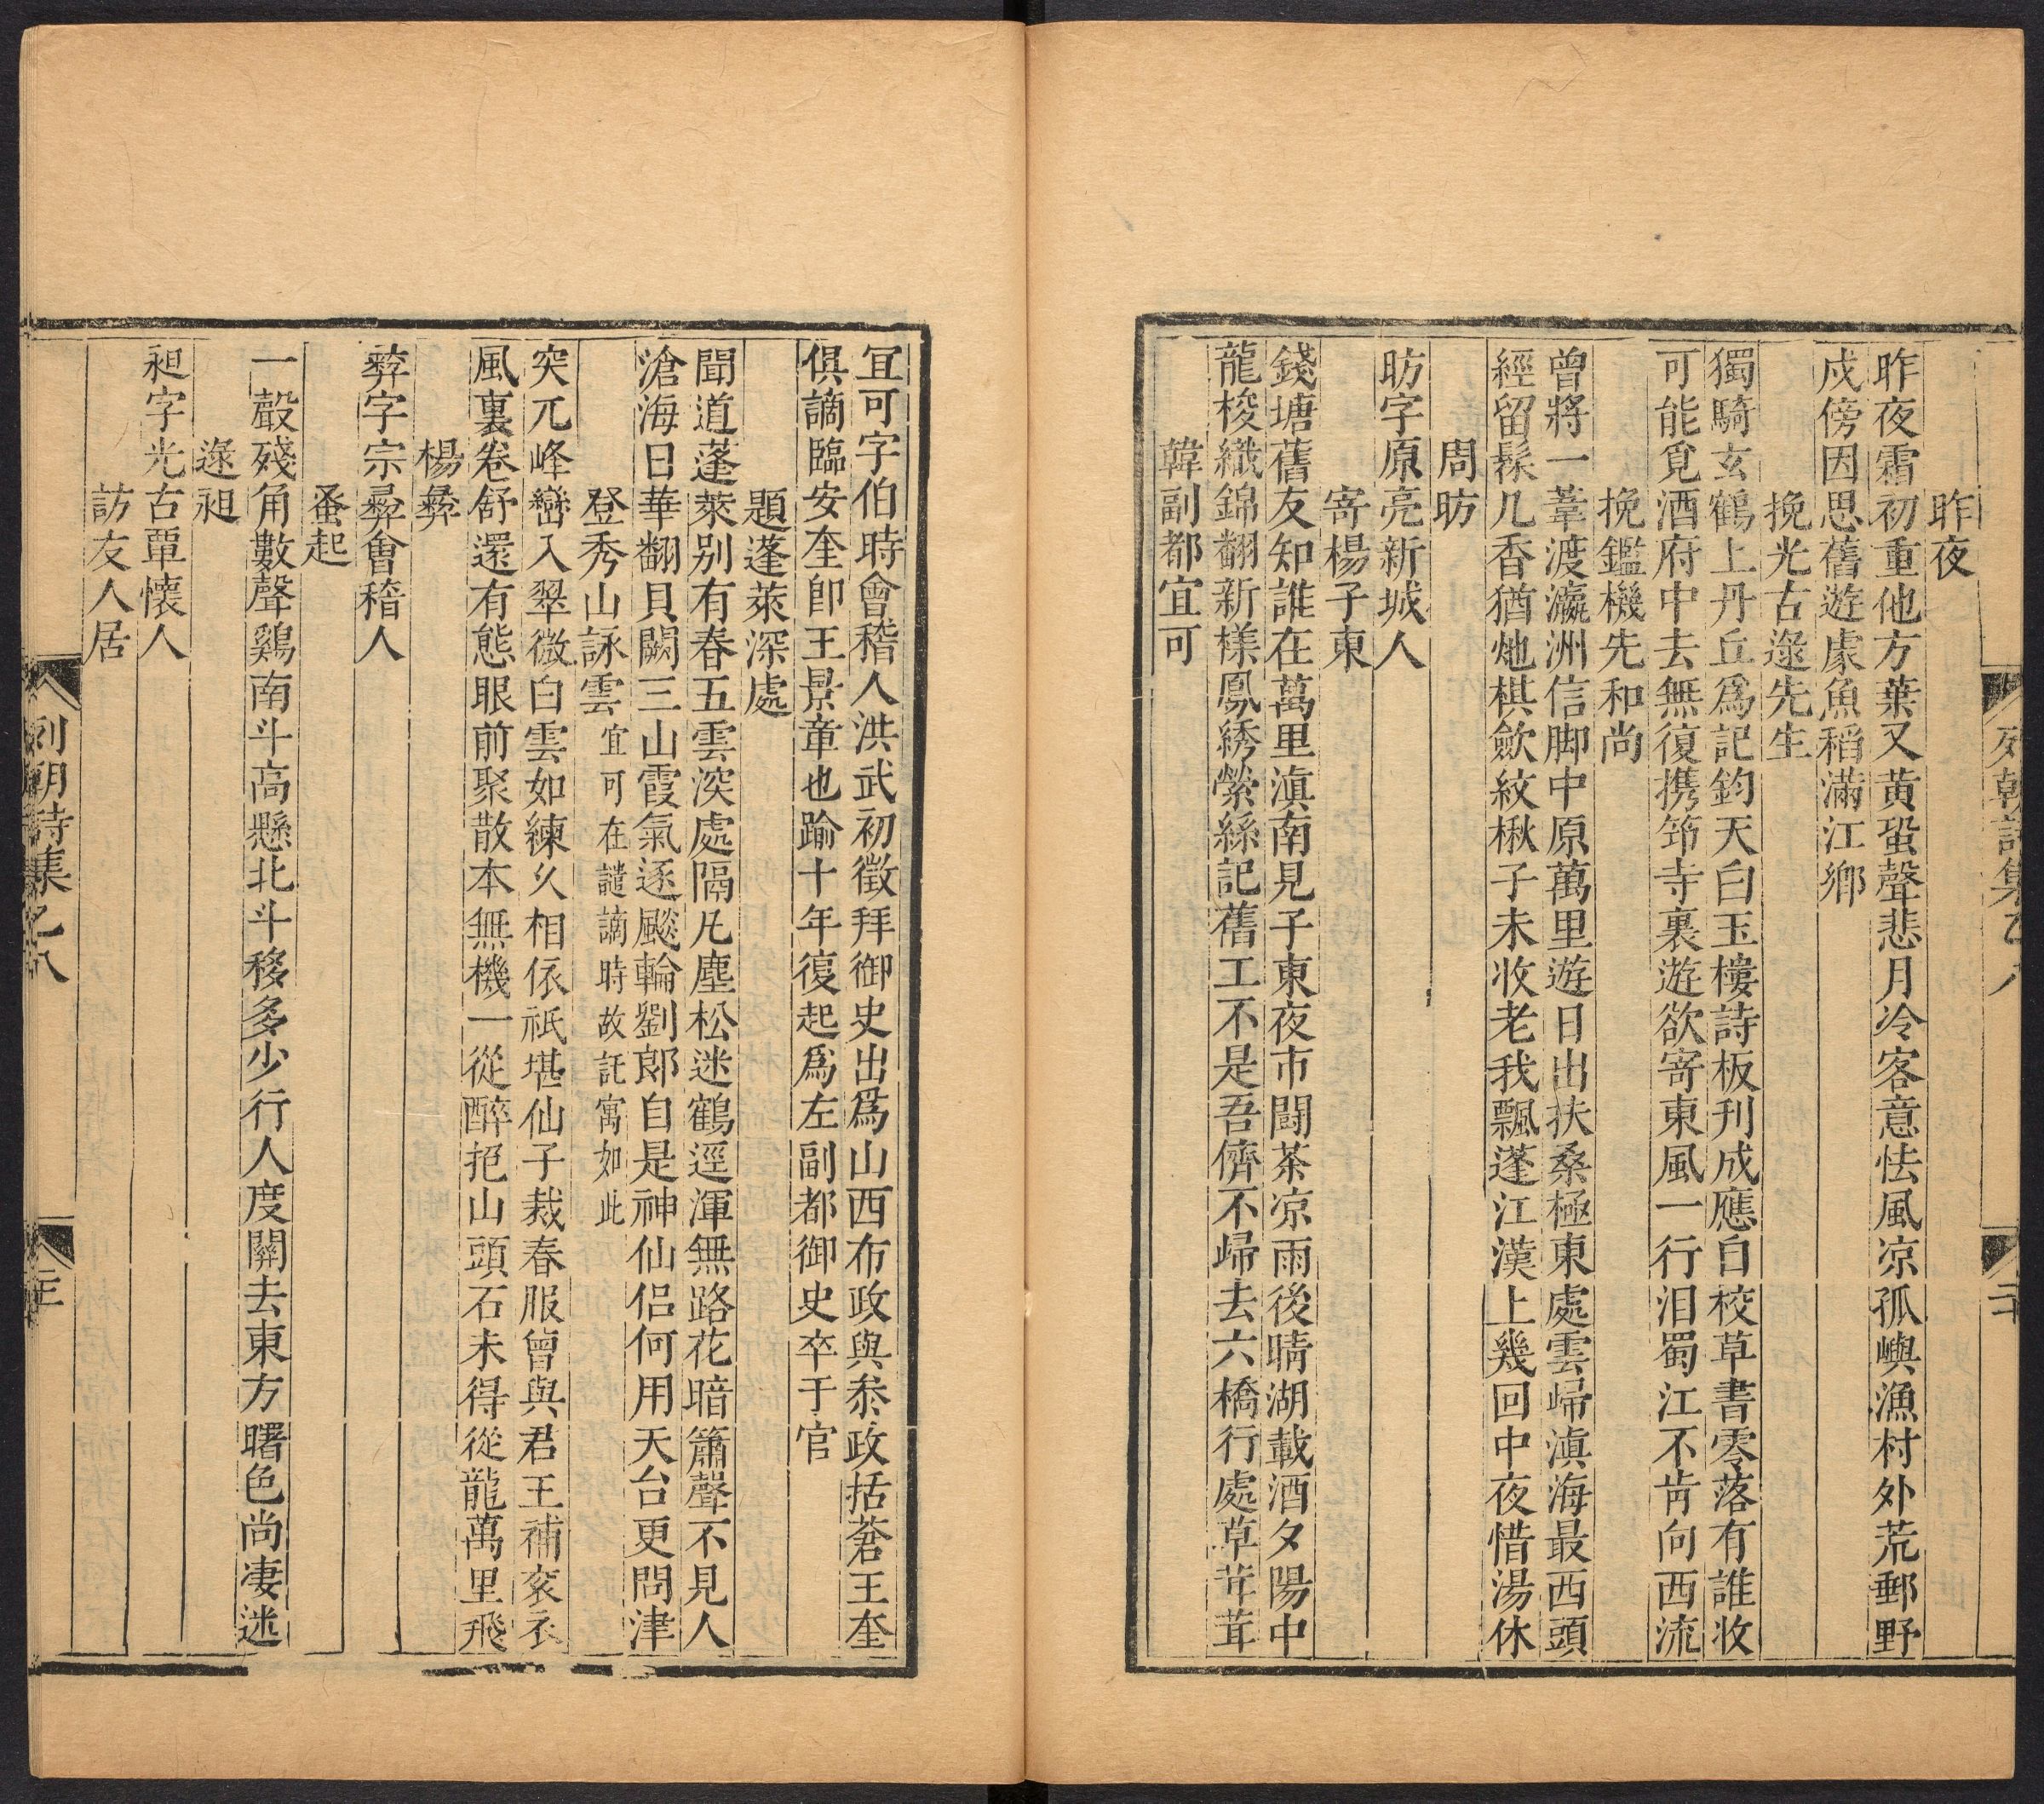 列朝詩集乙八
二十
昨夜
昨夜霜初重他方葉又黄蛩聲悲月冷客意怯風凉孤嶼漁村外荒郵野
戍傍因思舊遊處魚稻滿江鄉
挽光古逯先生
獨騎玄鶴上丹丘爲記鈞天白玉樓詩板刋成應白校草書零落有誰收
可能覓酒府中去無復携笻寺裏遊欲寄東風一行泪蜀江不肯向西流
挽鑑機先和尚
曾將一葦渡瀛洲信脚中原萬里遊日出扶桑極東處雲歸滇海最西頭
經留髹几香猶灺棋歛紋楸子未收老我飄蓬江漢上幾回中夜惜湯休
周昉
昉字原亮新城人
寄楊子東
錢塘舊友知誰在萬里滇南見子東夜市鬪茶凉雨後晴湖載酒夕陽中
龍梭織錦翻新様鳳綉縈絲記舊工不是吾儕不歸去六橋行處草茸茸
韓副都宜可
宜可字伯時會稽人洪武初徵拜御史出爲山西布政與叅政括蒼王奎
俱謫臨安奎卽王景章也踰十年復起爲左副都御史卒于官
題蓬萊深處
聞道蓬萊别有春五雲深處隔凢塵松迷鶴逕渾無路花暗簫聲不見人
滄海日華翻貝闕三山霞氣逐飈輪劉郎自是神仙侣何用天台更問津
登秀山詠雲宜可在譴謫時故託寓如此
突兀峰巒入翠微白雲如練久相依祇堪仙子裁春服曾與君王補衮衣
風裏卷舒還有態眼前聚散本無機一從醉抱山頭石未得從龍萬里飛
楊彝
彝字宗彝會稽人
蚤起
一聲殘角數聲鷄南斗高懸北斗移多少行人度關去東方曙色尚凄迷
逯昶
昶字光古覃懷人
訪友人居
列朝詩集乙八